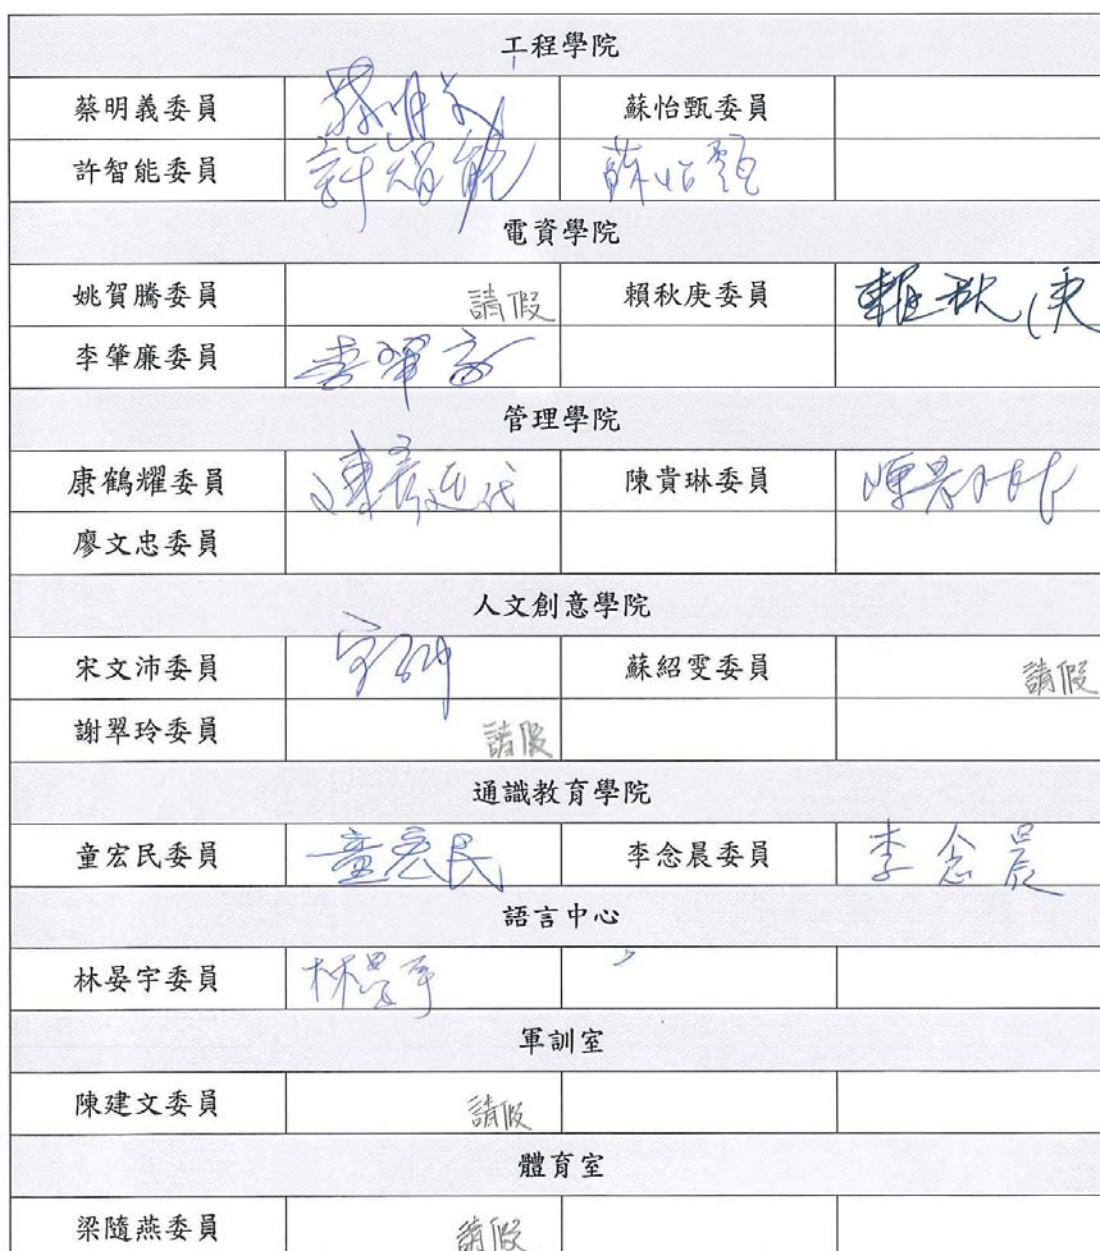 工程學院
蔡明義委員 蔡明义 蘇怡甄委員
許智能委員 許智能 蘇怡甄
電資學院
姚賀騰委員 請假 賴秋庚委員 賴秋庚
李肇廉委員 李肇廉
管理學院
康鶴耀委員 陳彥廷代 陳貴琳委員 陳貴琳
廖文忠委員
人文創意學院
宋文沛委員 蘇紹雯委員 請假
謝翠玲委員 請假
通識教育學院
童宏民委員 童宏民 李念晨委員 李念晨
語言中心
林晏宇委員 林晏宇
軍訓室
陳建文委員 請假
體育室
梁隨燕委員 請假